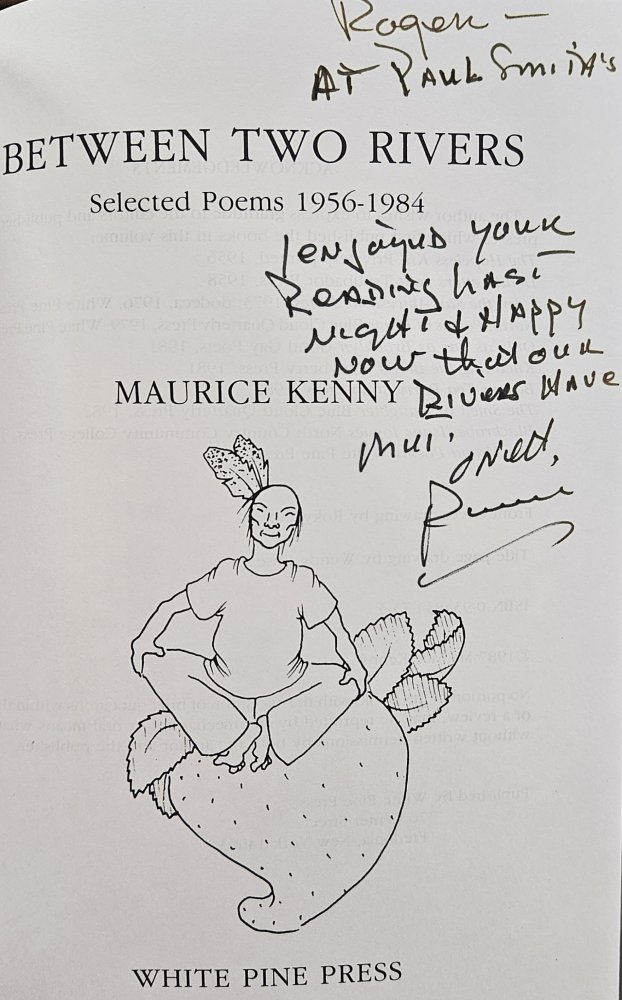 Roger —
AT PAUL SMITH'S
BETWEEN TWO RIVERS
Selected Poems 1956-1984
I ENJOYED YOUR
READING LAST
NIGHT & HAPPY
NOW that OUR
MAURICE KENNY
RIVERS HAVE
WHITE PINE PRESS